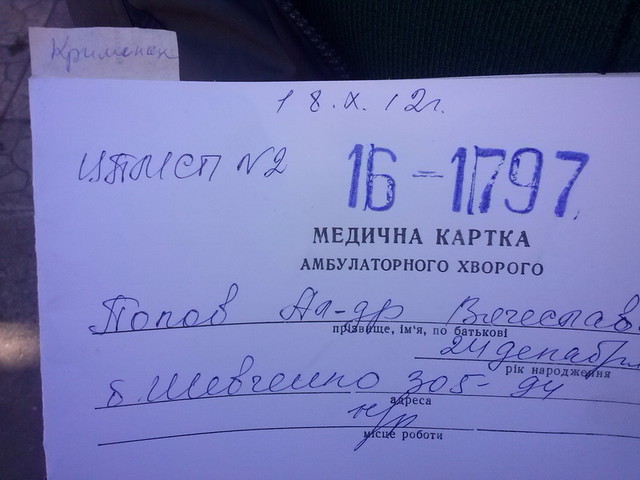 18.X.12г.
ЦПМСП №2
16-1797
МЕДИЧНА КАРТКА
АМБУЛАТОРНОГО ХВОРОГО
Попов Ал-др Вячеслав
прізвище, ім'я, по батькові
24 декабр
рік народження
б. Шевченко 305-94
адреса
н/р
місце роботи